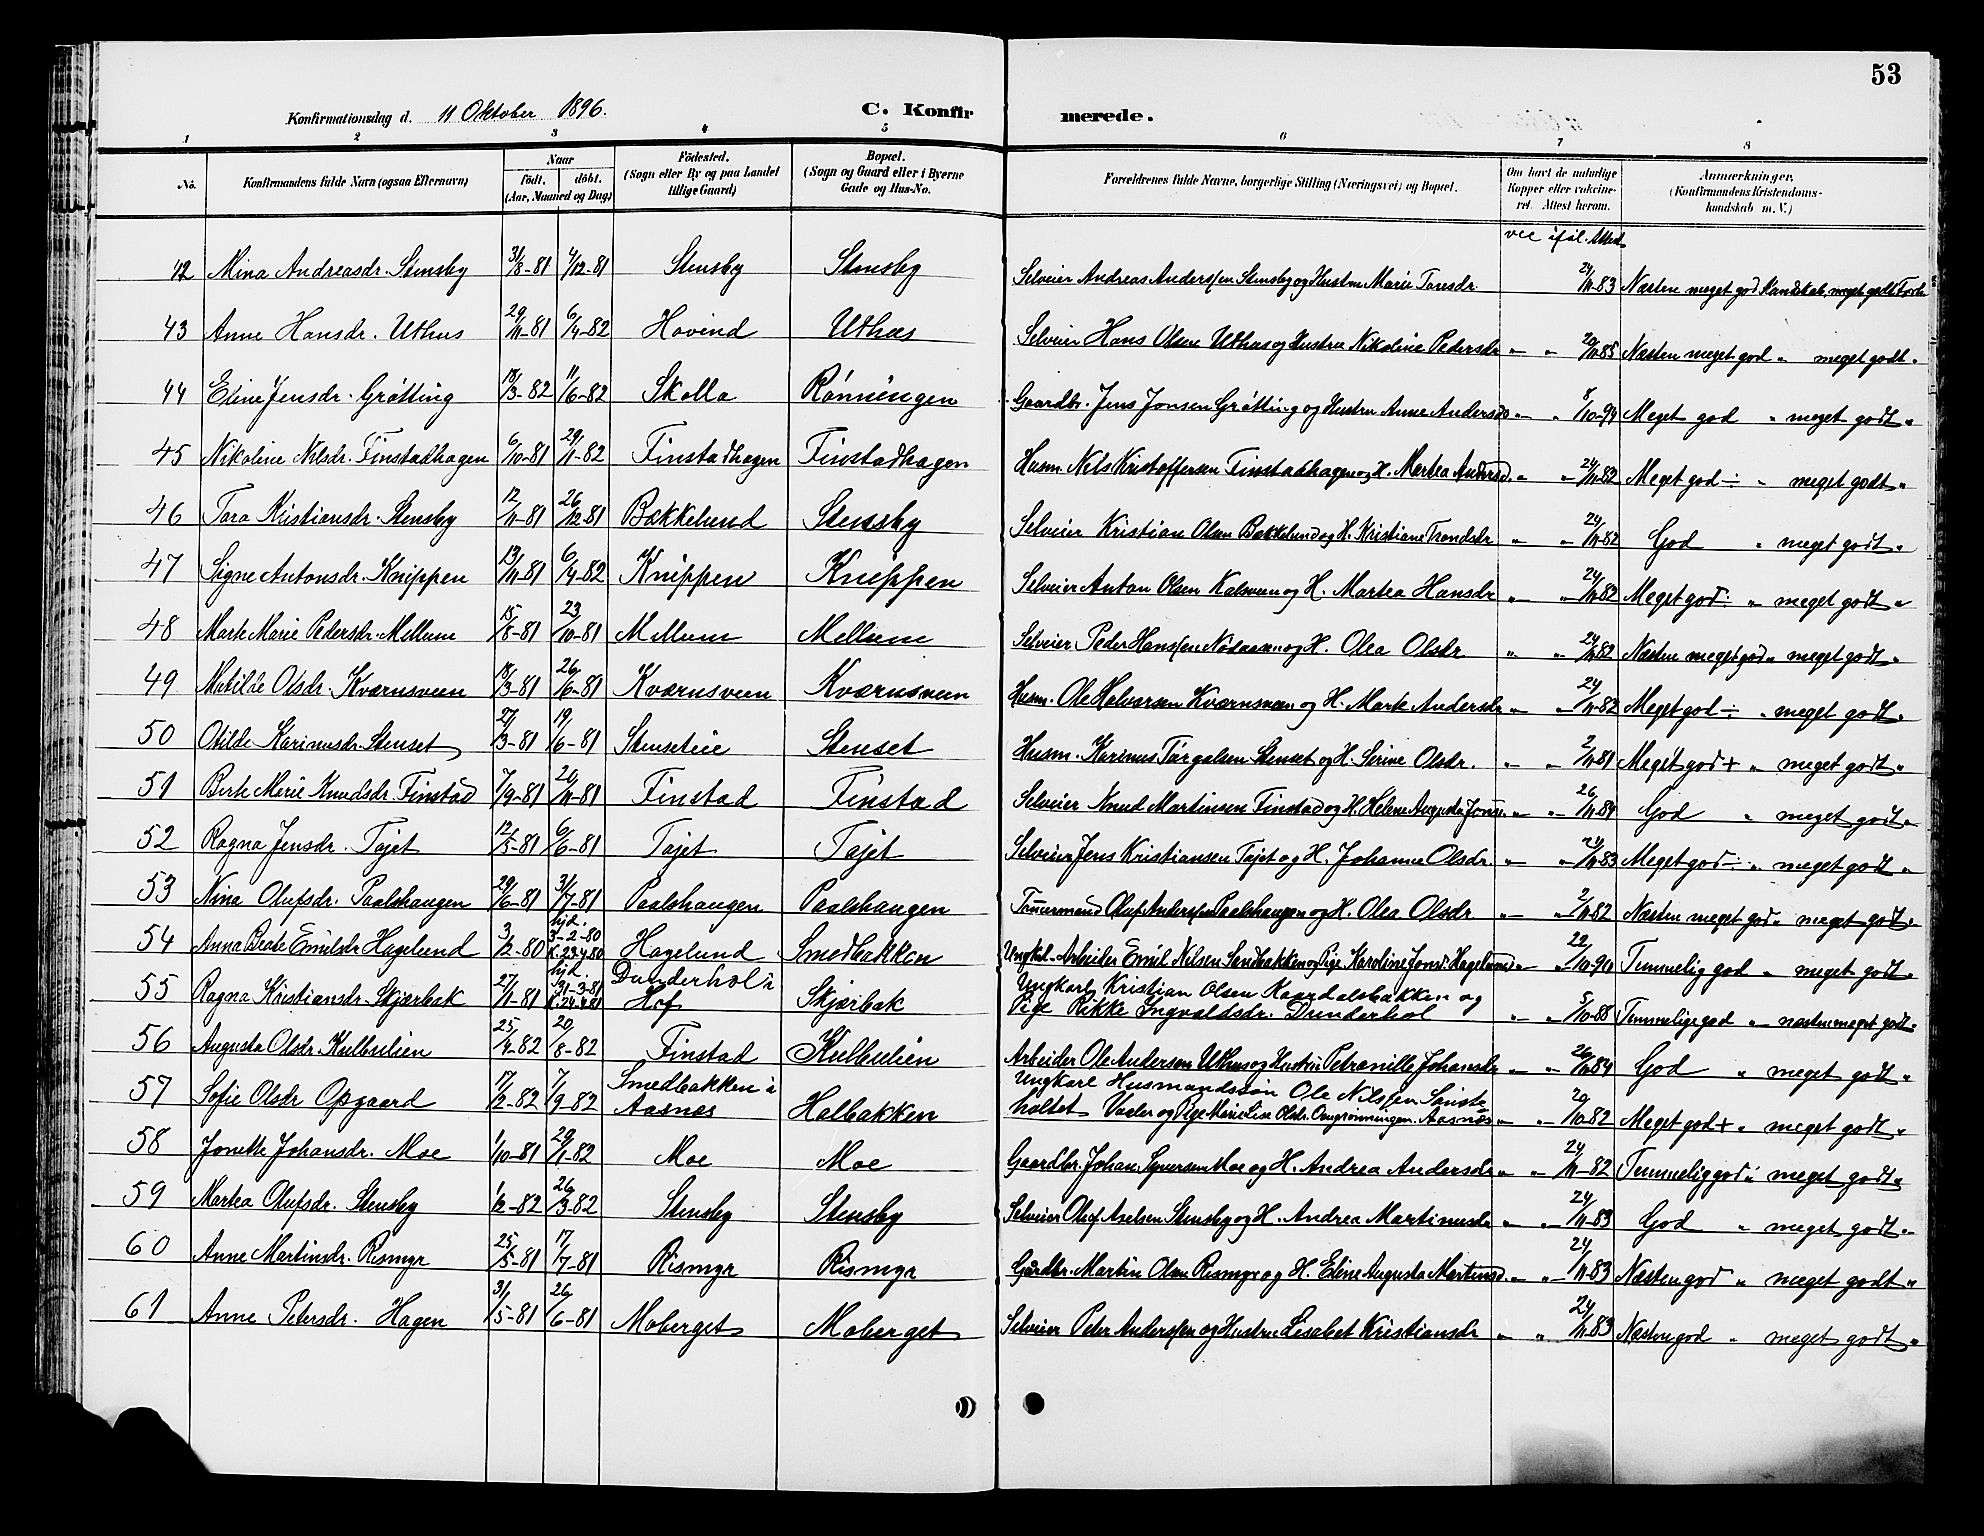 53
Konfirmationsdag d. 11 Oktober 1896. C. Konfirmerede.
1 2 3 4 5 6 7 8
No. Konfirmandens fulde Navn (ogsaa Efternavn) Naar født. døbt. (Aar, Maaned og Dag) Fødested. (Sogn eller By og paa Landet tillige Gaard) Bopæl. (Sogn og Gaard eller i Byerne Gade og Hus-No. Forældrenes fulde Navne, borgerlige Stilling (Næringsvei) og Bopæl. Om havt de naturlige Kopper eller vakcineret. Attest herom. Anmærkninger. (Konfirmandens Kristendomskundskab m. V.)
vac iføl. Attest
42 Mina Andreasdr. Stensby 31/8-81 4/12-81 Stensby Stensby Selveier Andreas Anderssen Stensby og Hustru Marie 24/11-83 Næsten meget god Kundskab, meget godt
43 Anne Hansdr. Uthus 29/11-81 6/4-82 Hovind Uthus Selveier Hans Olsen Uthus og Hustru Nikoline Pedersdr " " 20/11-85 Næsten meget god " meget godt "
44 Eline Jensdr. Grøtting 18/3-82 11/6-82 Skolla Rønningen Gaardbr. Jens Jonsen Grøtting og Hustru Anne " " 8/10-94 Meget god " meget godt "
45 Nikoline Nilsdr. Finstadhagen 6/10-81 29/1-82 Finstadhagen Finstadhagen Husm. Nels Kristoffersen Finstadhagen og H. Martea Andersd. " " 24/11-82 Meget god ÷ " meget godt "
46 Tora Kristiansdr. Stensby 12/11-81 26/12-81 Bakkelund Stensby Selveier Kristian Olsen Bakkelund og H. Kristiane Trondsdr " " 24/11-82 God " meget godt "
47 Signe Antonsdr. Knippen 13/11-81 6/4-82 Knippen Knippen Selveier Anton Olsen og H. Martea Hansdr " " 24/11-82 Meget god ÷ " meget godt "
48 Marte Marie Pedersdr. Mellum 15/8-81 23/10-81 Mellum Mellum Selveier Peder Hanssen og H. Olea Olsdr. " " 24/11-82 Næsten meget god " meget godt "
49 Matilde Olsdr. Kværnsveen 18/3-81 26/6-81 Kværnsveen Kværnsveen Husm. Ole Halvorsen Kværnsveen og H. Marte Andersdr " " 24/11-82 Meget god ÷ " meget godt "
50 Otilde Karinusdr. Stenset 27/3-81 19/6-81 Stenseteie Stenset Husm. Karenus Torgalsen Stenset og H. Serine Olsdr. " " 2/11-81 Meget god + " meget godt "
51 Berte Marie Knudsdr. Finstad 7/9-81 20/11-81 Finstad Finstad Selveier Knud Martinsen Finstad og H. Helene Augusta " " 26/11-84 God " meget godt "
52 Ragna Jensdr. Tajet 12/5-81 6/6-81 Tajet Tajet Selveier Jens Kristiansen Tajet og H. Johanne Olsdr. " " 24/11-83 Meget god ÷ " meget godt "
53 Nina Olufsdr. Paalshaugen 29/6-81 31/7-81 Paalshaugen Paalshaugen Tømmermand Oluf Anderssen Paalshaugen og H. Olea Olsdr " " 2/11-82 Næsten meget god " meget godt "
54 Anna Beate Emilsdr Hagelund 3/2-80 hjd. 3-2-80 K. 23.4.80 Hagelund Smedbakken Ungkl. Arbeider Emil Nelsen Sandbakken og Pige Karoline Jonsd. Hagelund " " 22/10-90 Temmelig god " meget godt "
55 Ragna Kristiansdr. Skjærbak 27/1-81 hjd. 31-3-81 K. 24.4.81 Dunderhol i Hof Skjærbak Ungkarl Kristian Olsen Kaardalsbakken og
Pige Rikke Ingvaldsdr. Dunderhol " " 5/10-88 Temmelig god " næsten meget godt "
56 Augusta Olsdr. Kulbulien 25/4-82 20/8-82 Finstad Kulbulien Arbeider Ole Andersen Uthus og Hustru Petronille Johansdr " " 26/11-84 God " meget godt "
57 Sofie Olsdr Opgaard 17/2-82 17/9-82 Smedbakken i Aasnes Halbakken Ungkarl Husmandssøn Ole Nilssen
Vaaler og Pige Marie Lise Olsdr. Aasnes " " 20/10-82 Meget god + " meget godt "
58 Jonette Johansdr. Moe 1/10-81 29/1-82 Moe Moe Gaardbr. Johan Syversen Moe og H. Andrea Andersdr. " " 24/11-82 Temmelig god " meget godt "
59 Martea Olufsdr. Stensby 1/2-82 26/3-82 Stensby Stensby Selveier Oluf Axelsen Stensby og H. Andrea Martinusdr " " 24/11-83 God " meget godt "
60 Anne Martinsdr. Rismyr 25/5-81 17/7-81 Rismyr Rismyr Gårdbr. Martin Olsen Rismyr og H. Eline Augusta Martinusd. " " 24/11-83 Næsten god " meget godt "
61 Anne Petersdr. Hagen 31/5-81 26/6-81 Moberget Moberget Selveier Peter Anderssen og Hustru Lisabet Kristiansdr " " 24/11-83 Næsten god " meget godt "